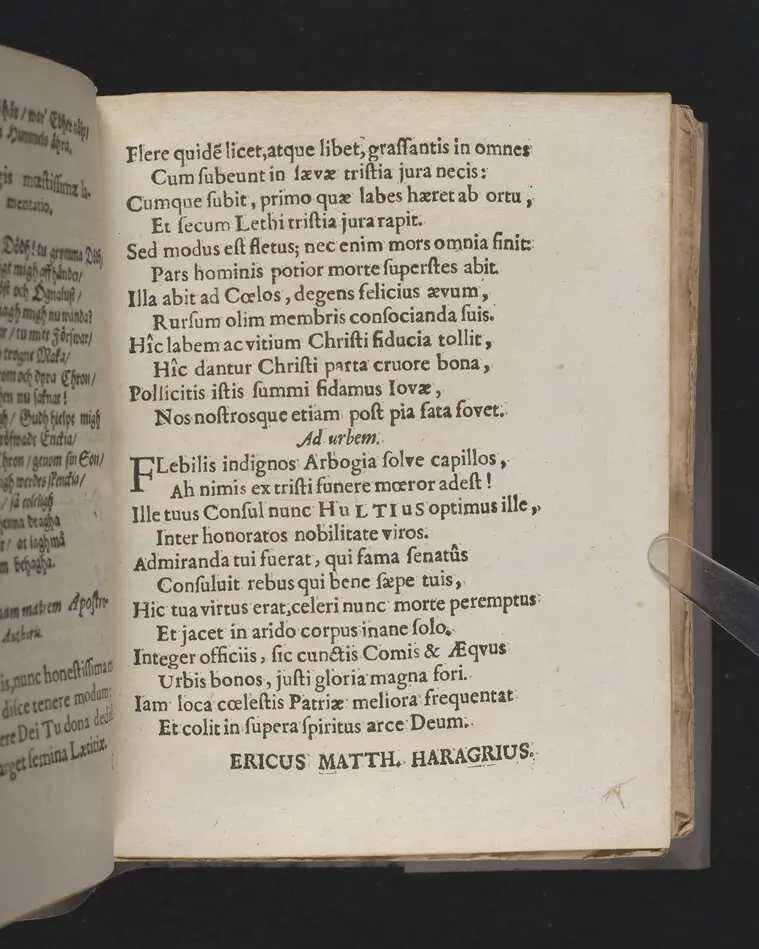 här / war' Edher näp/
Himmels ähra.
gis mœstissima la-
mentatio.
Dödh! tu grymma Död
migh aff hända/
och Ögnalust/
iagh migh nu wända?
/ tu mitt Förswar/
trogne Maka/
och dyra Chron/
nu saknat!
/ Gudh hielpe migh
Enckia/
hron / genom sin Son/
gh werdes skenckia/
/ så
dragha
/ at iagh må
behagha.
nam matrem Apostro-
Authoris.
is, nunc honestissima
disce tenere modum:
ere Dei Tu dona dedit
arget semina Lætitiæ.
Flere quidẽ licet, atque libet, graſſantis in omnes
Cum ſubeunt in ſævæ triſtia jura necis:
Cumque ſubit, primo quæ labes hæret ab ortu,
Et ſecum Lethi triſtia jura rapit.
Sed modus eſt fletus; nec enim mors omnia finit:
Pars hominis potior morte ſuperſtes abit.
Illa abit ad Cœlos, degens felicius ævum,
Rurſum olim membris conſocianda ſuis.
Hîc labem ac vitium Chriſti fiducia tollit,
Hîc dantur Chriſti parta cruore bona,
Pollicitis iſtis ſummi fidamus Iovæ,
Nos noſtrosque etiam poſt pia fata fovet.
Ad urbem.
FLebilis indignos Arbogia ſolve capillos,
Ah nimis ex triſti funere mœror adeſt!
Ille tuus Conſul nunc HuLTIuS optimus ille,
Inter honoratos nobilitate viros.
Admiranda tui fuerat, qui fama ſenatûs
Conſuluit rebus qui bene ſæpe tuis,
Hic tua virtus erat, celeri nunc morte peremptus
Et jacet in arido corpus inane ſolo.
Integer officiis, ſic cunctis Comis & Æqvus
Urbis bonos, juſti gloria magna fori.
Iam loca cœleſtis Patriæ meliora frequentat
Et colit in ſupera ſpiritus arce Deum.
ERICUS MATTH. HARAGRIUS.